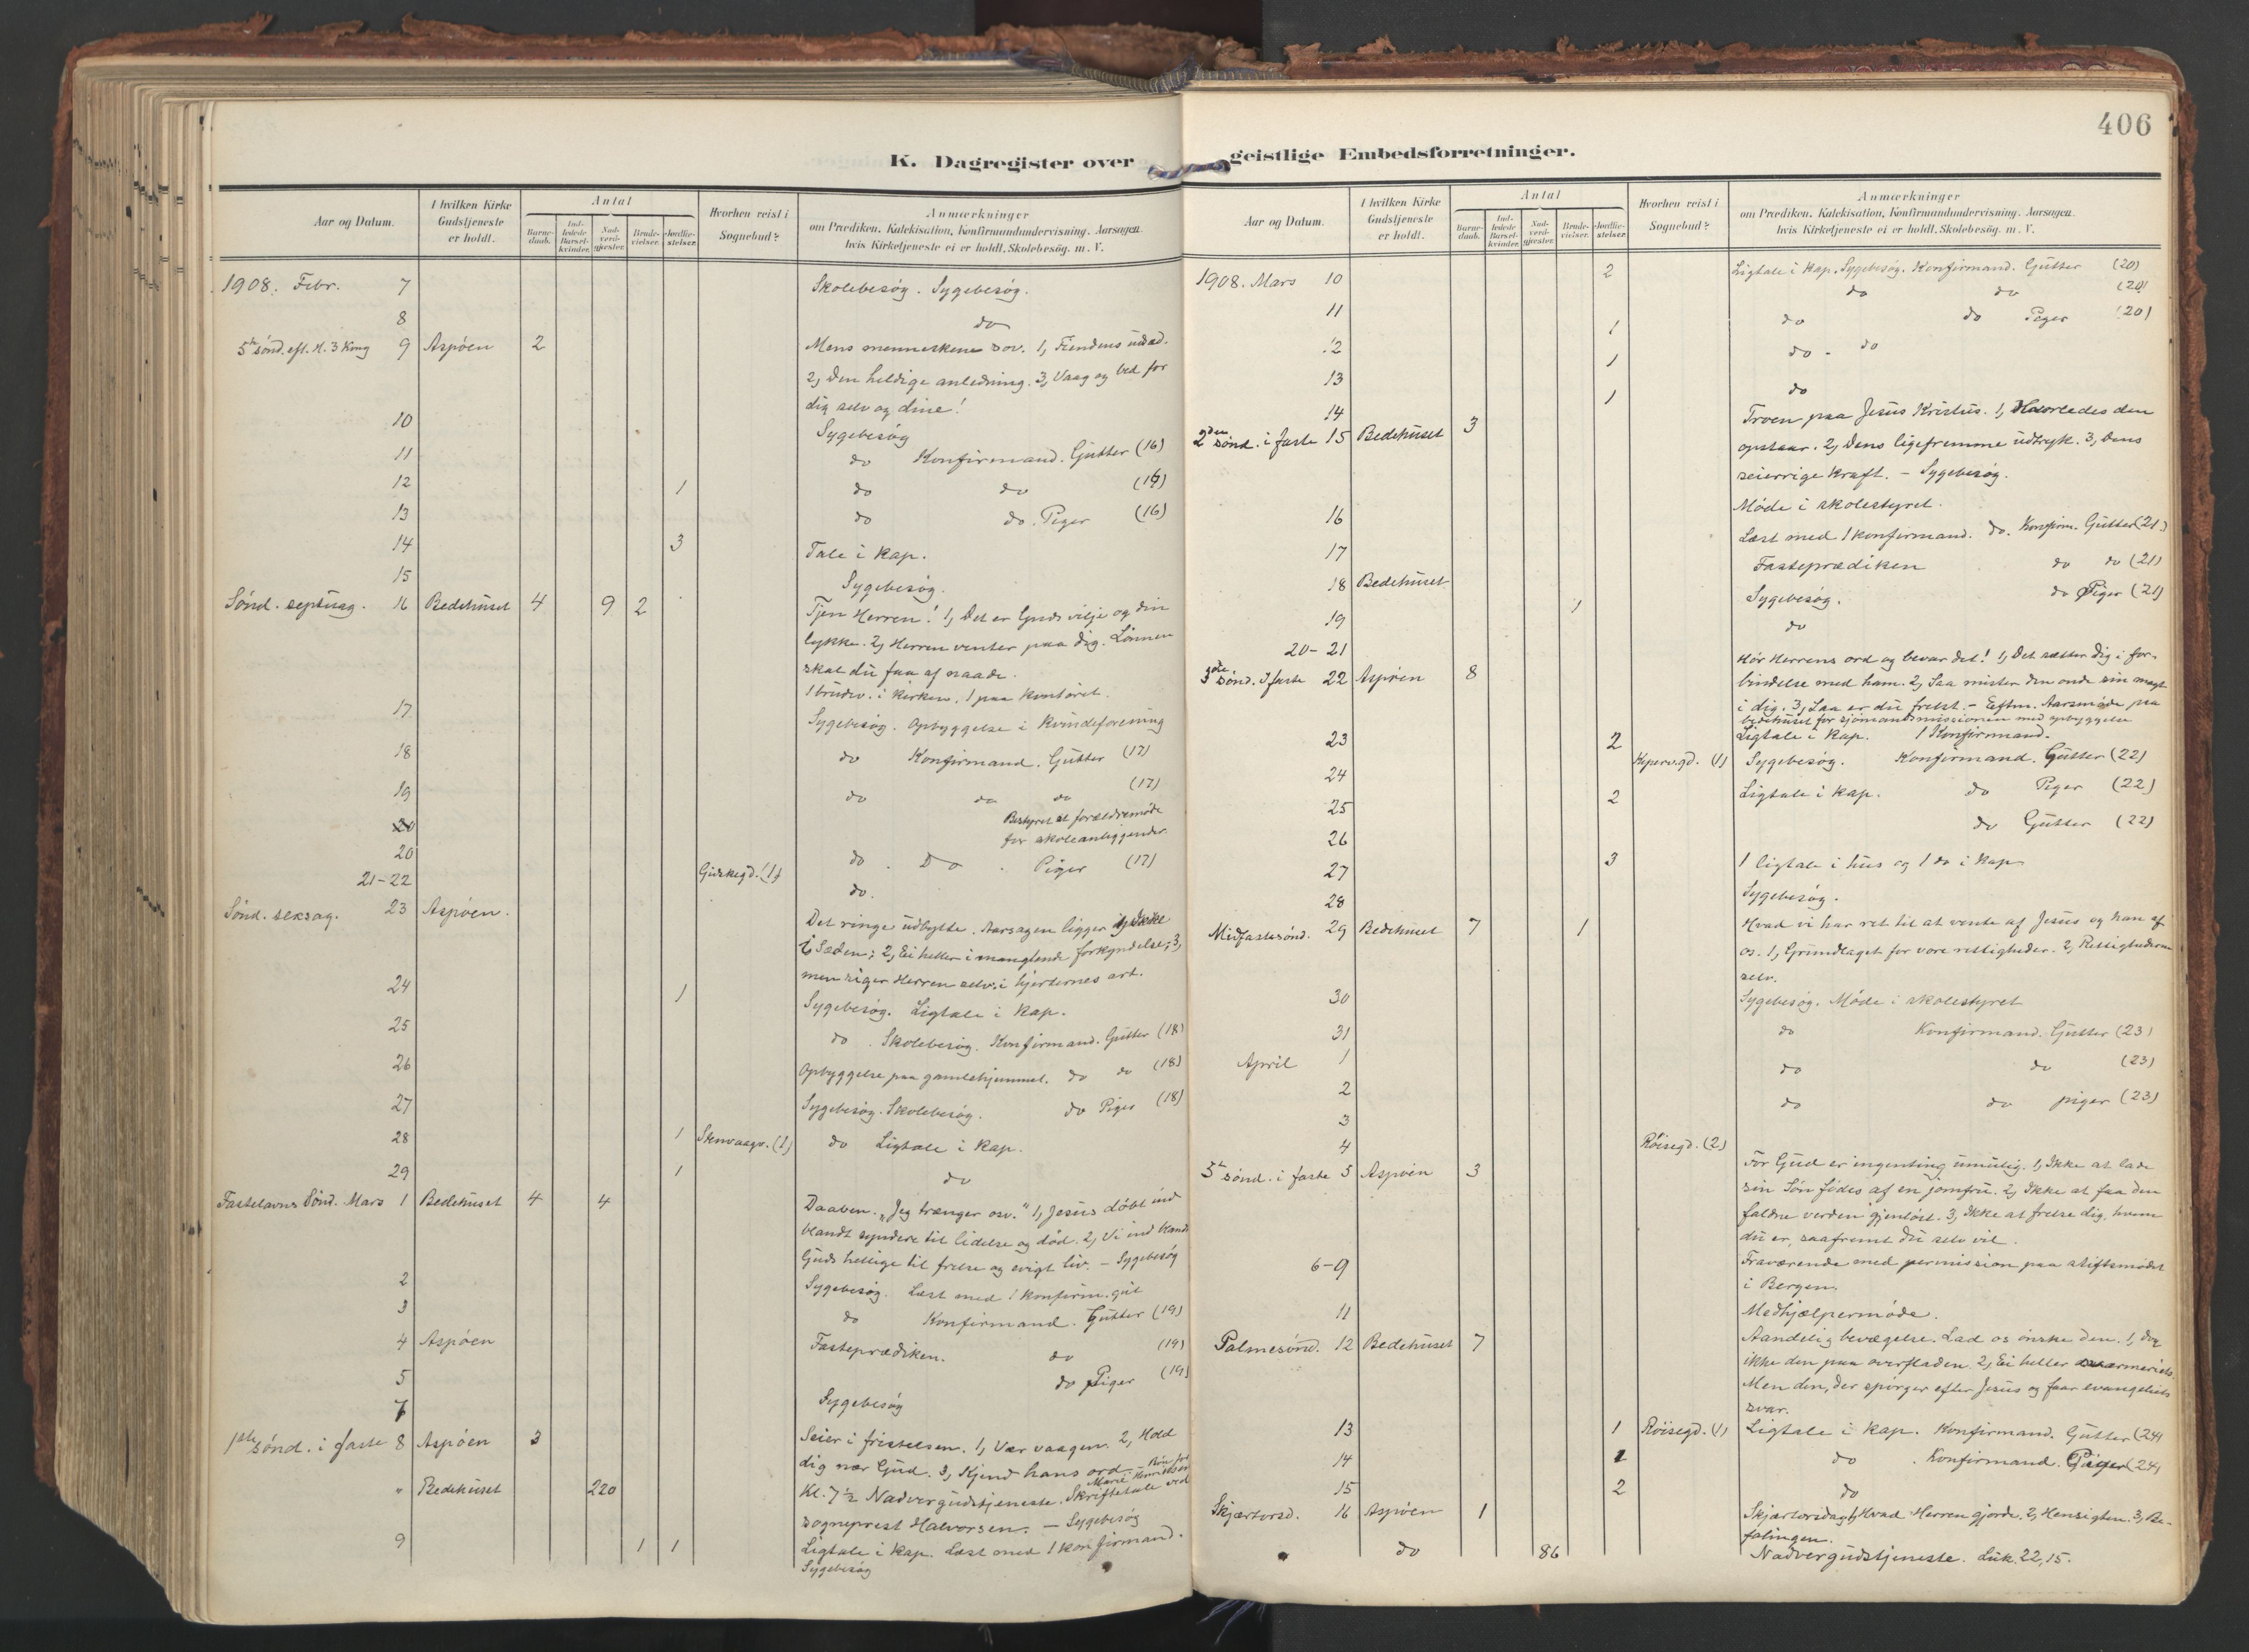 406
K. Dagregister over geistlige Embedsforretninger.
Aar og Datum.
I hvilken Kirke Gudstjeneste er holdt.
Antal
Barnedaab.
Indledede Barselkvinder.
Nadverdgjester.
Brudevielser.
Jordfæstelser.
Hvorhen reist i Sognebud?
Anmærkninger
om Prædiken, Katekisation, Konfirmandundervisning. Aarsagen
hvis Kirketjeneste ei er holdt. Skolebesög. m. V.
1908. Febr. 7 Skolebesøg. Sygebesøg.
8 do
5te sønd. eft. H. 3 Kong 9 Aspøen 2 Mens menneskene sov. 1, Fiendens udsæd.
2, Den heldige anledning. 3, Vaag og bed for
dig selv og dine!
10 Sygebesøg
11 do Konfirmand. Gutter (16)
12 1 do do (16)
13 do do. Piger (16)
14 3 Tale i Kap.
15 Sygebesøg.
Sønd. septuag. 16 Bedehuset 4 9 2 Tjen Herren! 1, Det er Guds vilje og din
lykke. 2, Herren venter paa dig. Lønnen
skal du faa af naade.
1 brudev. i kirken, 1 paa kontoret.
17 Sygebesøg. Opbyggelse i Kvindeforening
18 do Konfirmand. Gutter (17)
19 do do do (17)
20 Bestyret et forældremøde
for skoleanliggender
20 do. Do. Piger (17)
21-22 Gudskegd. (1) do.
Sønd. seksag. 23 Aspøen. Det ringe udbytte. Aarsagen ligger 1, Ikke
i Sæden; 2, Ei heller i manglende forkyndelse; 3,
men siger Herren selv: i hjerternes art.
24 1 Sygebesøg. Ligtale i Kap.
25 do. Skolebesøg. Konfirmand. Gutter (18)
26 Opbyggelse paa gamlehjemmet. do do (18)
27 Sygebesøg. Skolebesøg. do Piger (18)
28 1 (1) do Ligtale i Kap.
29 1 do
Fastelavns Sønd. Mars 1 Bedehuset 4 4 Daaben. "Jeg trænger osv." 1, Jesus døbt ind
blandt syndere til lidelse og død. 2, Vi ind blandt
Guds hellige til frelse og evigt liv. - Sygebesøg
2 Sygebesøg. Læst med 1 konfirm. gut
3 do Konfirmand. Gutter (19)
4 Aspøen Fasteprædiken. do (19)
5 do Piger (19)
7 Sygebesøg
1ste sønd. i faste 8 Aspøen 3 Seier i fristelsen. 1, Vær vaagen. 2, Hold
dig nær Gud. 3, Kjend hans ord. -
" Bedehuset 220 Kl. 7 1/2 Nadvergudstjeneste. Skriftetale ved
sogneprest Halvorsen. - Sygebesøg
9 1 1 Ligtale i Kap. Læst med 1 konfirmand.
Sygebesøg
Aar og Datum.
I hvilken Kirke Gudstjeneste er holdt.
Antal
Barnedaab.
Indledede Barselkvinder.
Nadverdgjester.
Brudevielser.
Jordfæstelser.
Hvorhen reist i Sognebud?
Anmærkninger
om Prædiken, Katekisation, Konfirmandundervisning. Aarsagen
hvis Kirketjeneste ei er holdt. Skolebesög. m. V.
1908. Mars 10 2 Ligtale i Kap. Sygebesøg. Konfirmand. Gutter (20)
11 do do (20)
12 1 do do Piger (20)
13 1 do - do
14 1 do
2den sønd. i faste 15 Bedehuset 3 Troen paa Jesus Kristus. 1, Hvorledes den
opstaar. 2, Dens ligefremme udtryk. 3, Dens
seierrige kraft. - Sygebesøg.
16 Møde i skolestyret.
17 Læst med 1 konfirmand. do. Konfirm. Gutter (21)
18 Bedehuset Fasteprædiken do do (21)
19 1 Sygebesøg. do Piger (21)
20-21 do
3die sønd. i faste 22 Aspøen 8 Hør Herrens ord og bevar det! 1, Det sætter dig i for-
bindelse med ham. 2, Saa mister den onde sin magt
i dig. 3, Saa er du frelst. - Eftm. Aarsmøde paa
bedehuset for sjømandsmissionen med opbyggelse
23 2 Ligtale i Kap. 1 Konfirmand.
24 (1) Sygebesøg. Konfirmand. Gutter (22)
25 2 Ligtale i Kap. do Piger (22)
26 do Gutter (22)
27 3 1 ligtale i hus og 1 do i kap
28 Sygebesøg.
Midfastesønd. 29 Bedehuset 7 1 Hvad vi har ret til at vente af Jesus og han af
os. 1, Grundlaget for vore rettigheder. 2, Rettighederne
selv.
30 Sygebesøg. Møde i skolestyret
31 do Konfirmand. Gutter (23)
April 1 do do (23)
2 do do piger (23)
3
4 Røisegd. (2)
5te sønd. i faste 5 Aspøen 3 For Gud er ingenting umulig. 1, Ikke at lade
sin Søn fødes af en jomfru. 2, Ikke at faa den
faldne verden gjenløst. 3, Ikke at frelse dig, hvem
du er, saafremt du selv vil.
6-9 Fraværende med permission paa stiftsmødet
i Bergen.
11 Medhjælpermøde.
Palmesønd. 12 Bedehuset 7 Aandelig bevægelse. Lad os ønske den. 1, Dog
ikke den paa overfladen. 2, Ei heller sværmeriets
Men den, der spørger efter Jesus og faar evangeliets
svar.
13 1 Røisegd. (1) Ligtale i Kap. Konfirmand. Gutter (24)
14 1 do. Konfirmand. Piger (24)
15 2 do
Skjærtorsd. 16 Aspøen 1 Skjærtorsdag. 1, Hvad Herren gjorde. 2, Hensigten. 3, Be-
falingen.
do 86 Nadvergudstjeneste. Luk. 22,15.